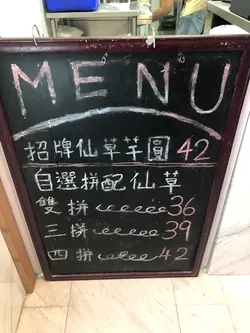 MENU
招牌仙草芋圓 42
自選拼配仙草
雙拼 36
三拼 39
四拼 42